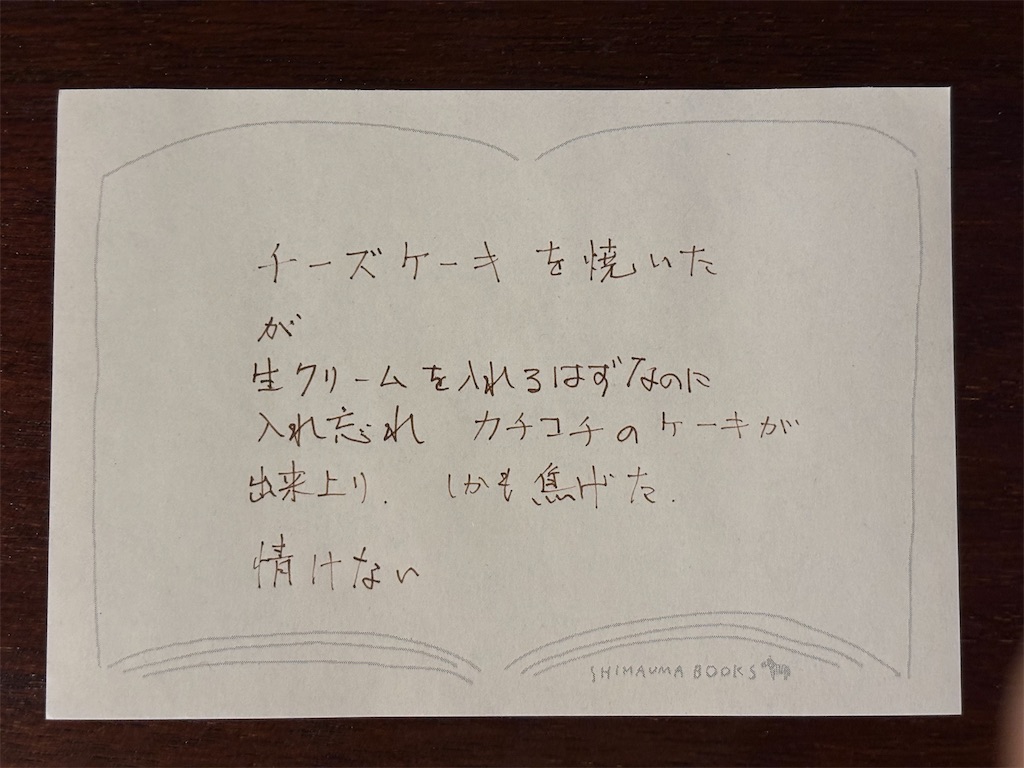 チーズケーキを焼いた
が
生クリームを入れるはずなのに
入れ忘れ カチコチのケーキが
出来上り. しかも焦げた.
情けない
SHIMAUMA BOOKS